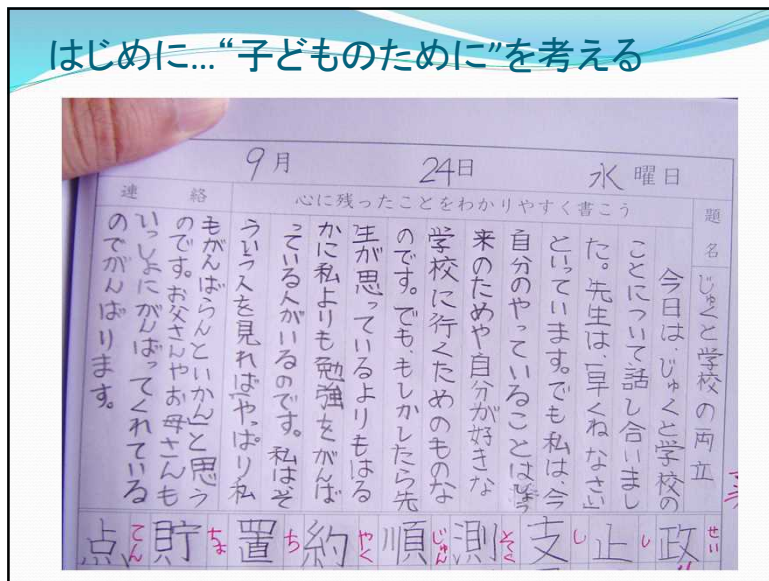 はじめに…“子どものために”を考える
9月 24日 水曜日
心に残ったことをわかりやすく書こう
連絡
題名
じゅくと学校の両立
今日は、じゅくと学校の
ことについて話し合いまし
た。先生は、「早くねなさい」
といっています。でも私は、今
自分のやっていることは将
来のためや自分が好きな
学校に行くためのものな
のです。でも、もしかしたら先
生が思っているよりもはる
かに私よりも勉強をがんば
っている人がいるのです。私はそ
ういう人を見れば「やっぱり私
もがんばらんといかん」と思う
のです。お父さんやお母さんも
いっしょにがんばってくれている
のでがんばります。
政 せい
止 し
支 し
測 そく
順 じゅん
約 やく
置 ち
貯 ちょ
点 てん